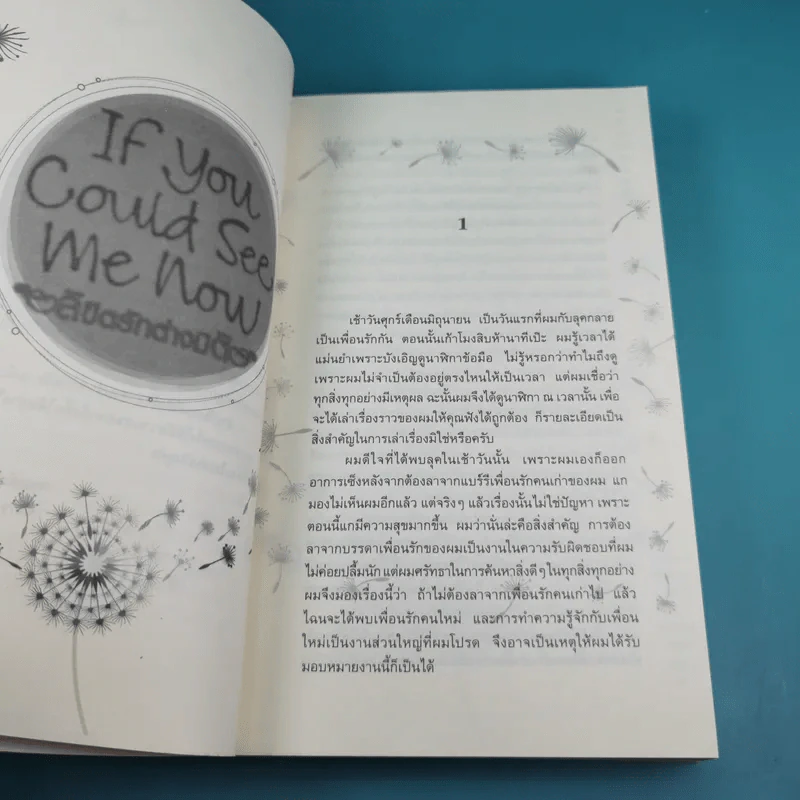 If You
Could See
Me Now
ลิขิตรักต่างมิติ
1
เช้าวันศุกร์เดือนมิถุนายน เป็นวันแรกที่ผมกับลุคกลาย
เป็นเพื่อนรักกัน ตอนนั้นเก้าโมงสิบห้านาทีเป๊ะ ผมรู้เวลาได้
แม่นยำเพราะบังเอิญดูนาฬิกาข้อมือ ไม่รู้หรอกว่าทำไมถึงดู
เพราะผมไม่จำเป็นต้องอยู่ตรงไหนให้เป็นเวลา แต่ผมเชื่อว่า
ทุกสิ่งทุกอย่างมีเหตุผล ฉะนั้นผมจึงได้ดูนาฬิกา ณ เวลานั้น เพื่อ
จะได้เล่าเรื่องราวของผมให้คุณฟังได้ถูกต้อง ก็รายละเอียดเป็น
สิ่งสำคัญในการเล่าเรื่องมิใช่หรือครับ
ผมดีใจที่ได้พบลุคในเช้าวันนั้น เพราะผมเองก็ออก
อาการเซ็งหลังจากต้องลาจากแบร์รีเพื่อนรักคนเก่าของผม แก
มองไม่เห็นผมอีกแล้ว แต่จริงๆ แล้วเรื่องนั้นไม่ใช่ปัญหา เพราะ
ตอนนี้แกมีความสุขมากขึ้น ผมว่านั่นล่ะคือสิ่งสำคัญ การต้อง
ลาจากบรรดาเพื่อนรักของผมเป็นงานในความรับผิดชอบที่ผม
ไม่ค่อยปลื้มนัก แต่ผมศรัทธาในการค้นหาสิ่งดีๆ ในทุกสิ่งทุกอย่าง
ผมจึงมองเรื่องนี้ว่า ถ้าไม่ต้องลาจากเพื่อนรักคนเก่าไป แล้ว
ไฉนจะได้พบเพื่อนรักคนใหม่ และการทำความรู้จักกับเพื่อน
ใหม่เป็นงานส่วนใหญ่ที่ผมโปรด จึงอาจเป็นเหตุให้ผมได้รับ
มอบหมายงานนี้ก็เป็นได้